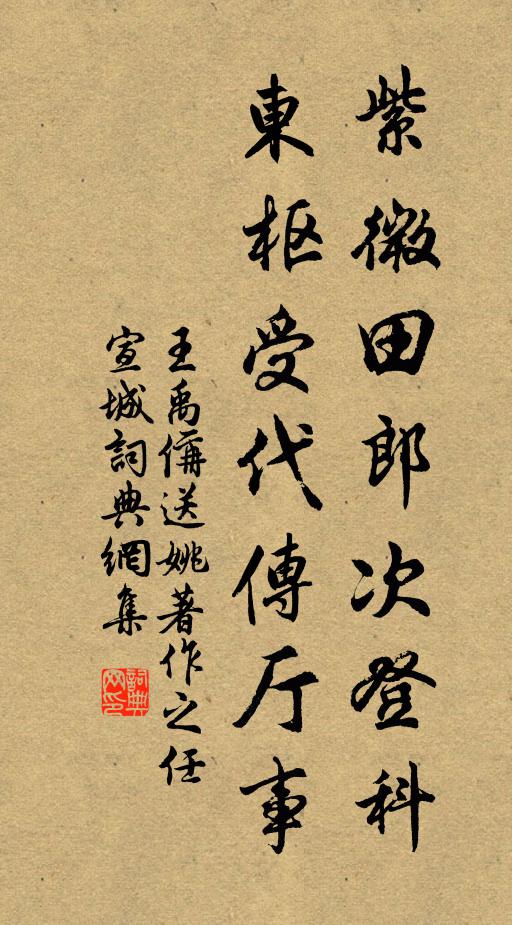 紫微田郎次登科
東枢受代傳厅事
王禹偁送姚著作之任
宣城詞典網集
詞典网印